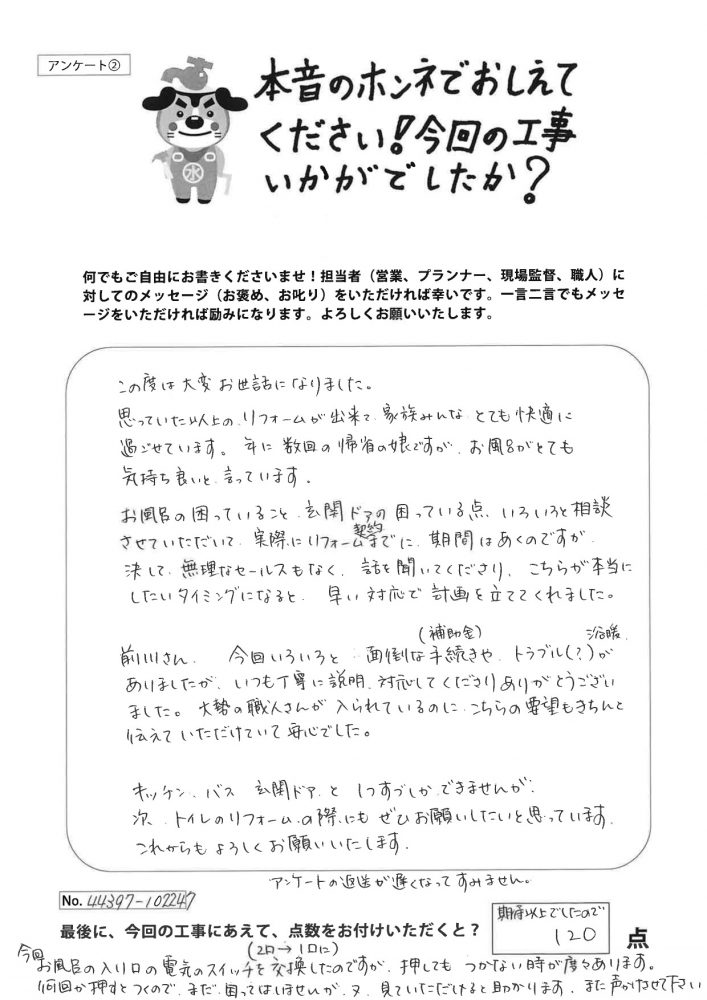 アンケート②
本音のホンネでおしえて
ください!今回の工事
いかがでしたか?
水
何でもご自由にお書きくださいませ!担当者(営業、プランナー、現場監督、職人)に
対してのメッセージ(お褒め、お叱り)をいただければ幸いです。一言二言でもメッセ
ージをいただければ励みになります。よろしくお願いいたします。
この度は大変お世話になりました。
思っていた以上の、リフォームが出来て、家族みんな、とても快適に
過ごせています。年に数回の帰省の娘ですが、お風呂がとても
気持ち良いと言っています。
お風呂の困っていること、玄関ドアの困っている点、いろいろと相談
させていただいて、実際にリフォーム契約までに、期間はあくのですが、
決して、無理なセールスもなく、話を聞いてくださり、こちらが本当に
したいタイミングになると、早い対応で計画を立ててくれました。
(補助金) 浴暖、
前川さん、今回いろいろと、面倒な手続きや、トラブル(?)が
ありましたが、いつも丁寧に説明、対応してくださりありがとうござい
ました。大勢の職人さんが入られているのに、こちらの要望もきちんと
伝えていただけていて安心でした。
キッチン、バス、玄関ドア、と1つずつしかできませんが、
次、トイレのリフォームの際にもぜひお願いしたいと思っています。
これからもよろしくお願いいたします。
アンケートの返送が遅くなってすみません。
No. 44397-102247
最後に、今回の工事にあえて、点数をお付けいただくと?
期待以上でしたので
120 点
(2口→1口に)
今回
お風呂の入り口の電気のスイッチを交換したのですが、押してもつかない時が度々あります。
何回か押すとつくので、まだ困ってはいませんが、又、見ていただけると助かります。また声かけさせて下さい